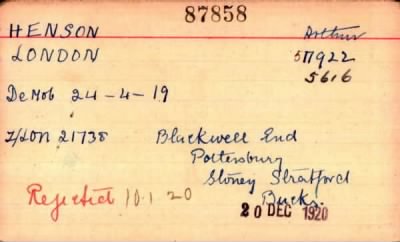 87858
HENSON Arthur
LONDON 577922
5616
DeMob 24-4-19
Z/LON 21738 Blackwell End
Pottersbury
Stoney Stratford
Bucks.
Rejected 10.1.20
20 DEC 1920